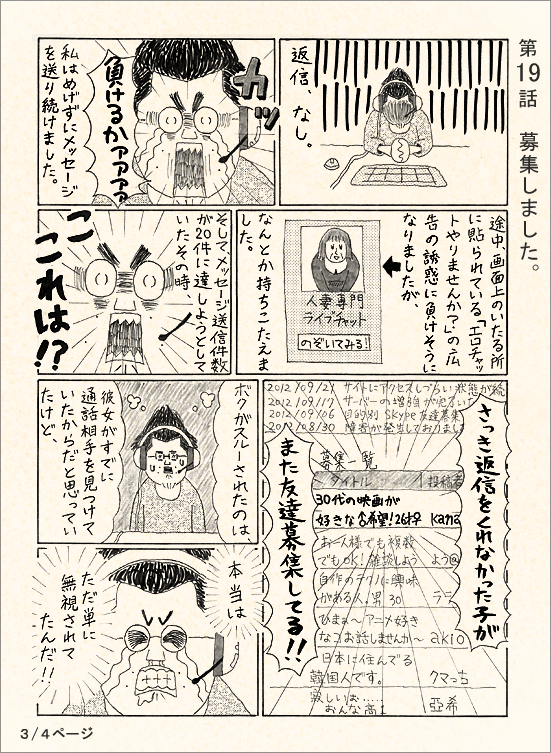 第19話 募集しました。
返信、なし。
カッ
負けるかァァァァ
私はめげずにメッセージ
を送り続けました。
途中、画面上のいたる所
に貼られている「エロチャッ
トやりませんか？」の広
告の誘惑に負けそうに
なりましたが、
人妻専門
ライブチャット
のぞいてみる!
なんとか持ちこたえま
した。
そして、メッセージ送信件数
が20件に達しようとして
いたその時、
こ
これは!?
さっき返信をくれなかった子が
また友達募集してる!!
2012/09/21 サイトにアクセスしづらい状態が続
2012/09/17 サーバーの増強が完了いた
2012/09/06 目的別Skype友達募集
2012/08/30 障害が発生しておりまし
募集一覧
タイトル 投稿者
30代の映画が
好きな合希望!26才♀ kana
お一人様でも複数
でもOK!雑談しよう よう@
自作のラフルに興味
がある人!男30 ララ
ひまぁ〜アニメ好き
なコお話しませんか〜 akio
日本に住んでる
韓国人です。 クマっち
寂しいお……
おんな高2 亞希
ボクがスルーされたのは、
彼女がすでに
通話相手を見つけて
いたからだと思ってい
たけど、
本当は
ただ単に
無視されて
たんだ!!
3/4ページ